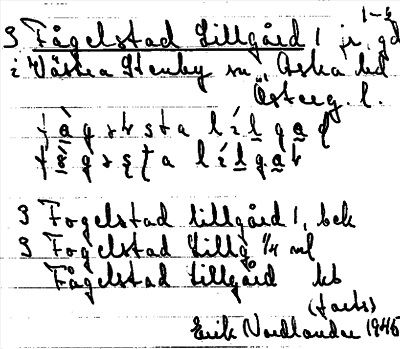 1-5
Fågelstad Lillgård 1 jr, gd
i Västra Stenby sn Aska hd
Österg. l.
Fogelstad lillgård 1, bek
Fogelstad Lillg 1/4 ml
Fågelstad lillgård kb
(forts)
Erik Nordlander 1946